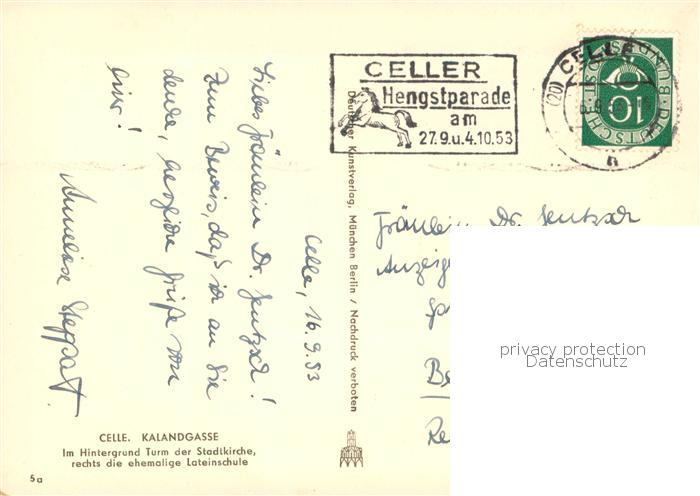 Celle, 16.9.53
Liebes Fräulein Dr. Jentzsch!
Zum Beweis, daß ich an Sie
denke, herzliche Grüße von
hier!
Annelise Steppat.
CELLER
Hengstparade
am
27.9.u.4.10.53
(20) CELLE
h
DEUTSCHE BUNDESPOST
10
Deutscher Kunstverlag, München Berlin / Nachdruck verboten
Fräulein Dr. Jentzsch
privacy protection
Datenschutz
CELLE. KALANDGASSE
Im Hintergrund Turm der Stadtkirche,
rechts die ehemalige Lateinschule
5a